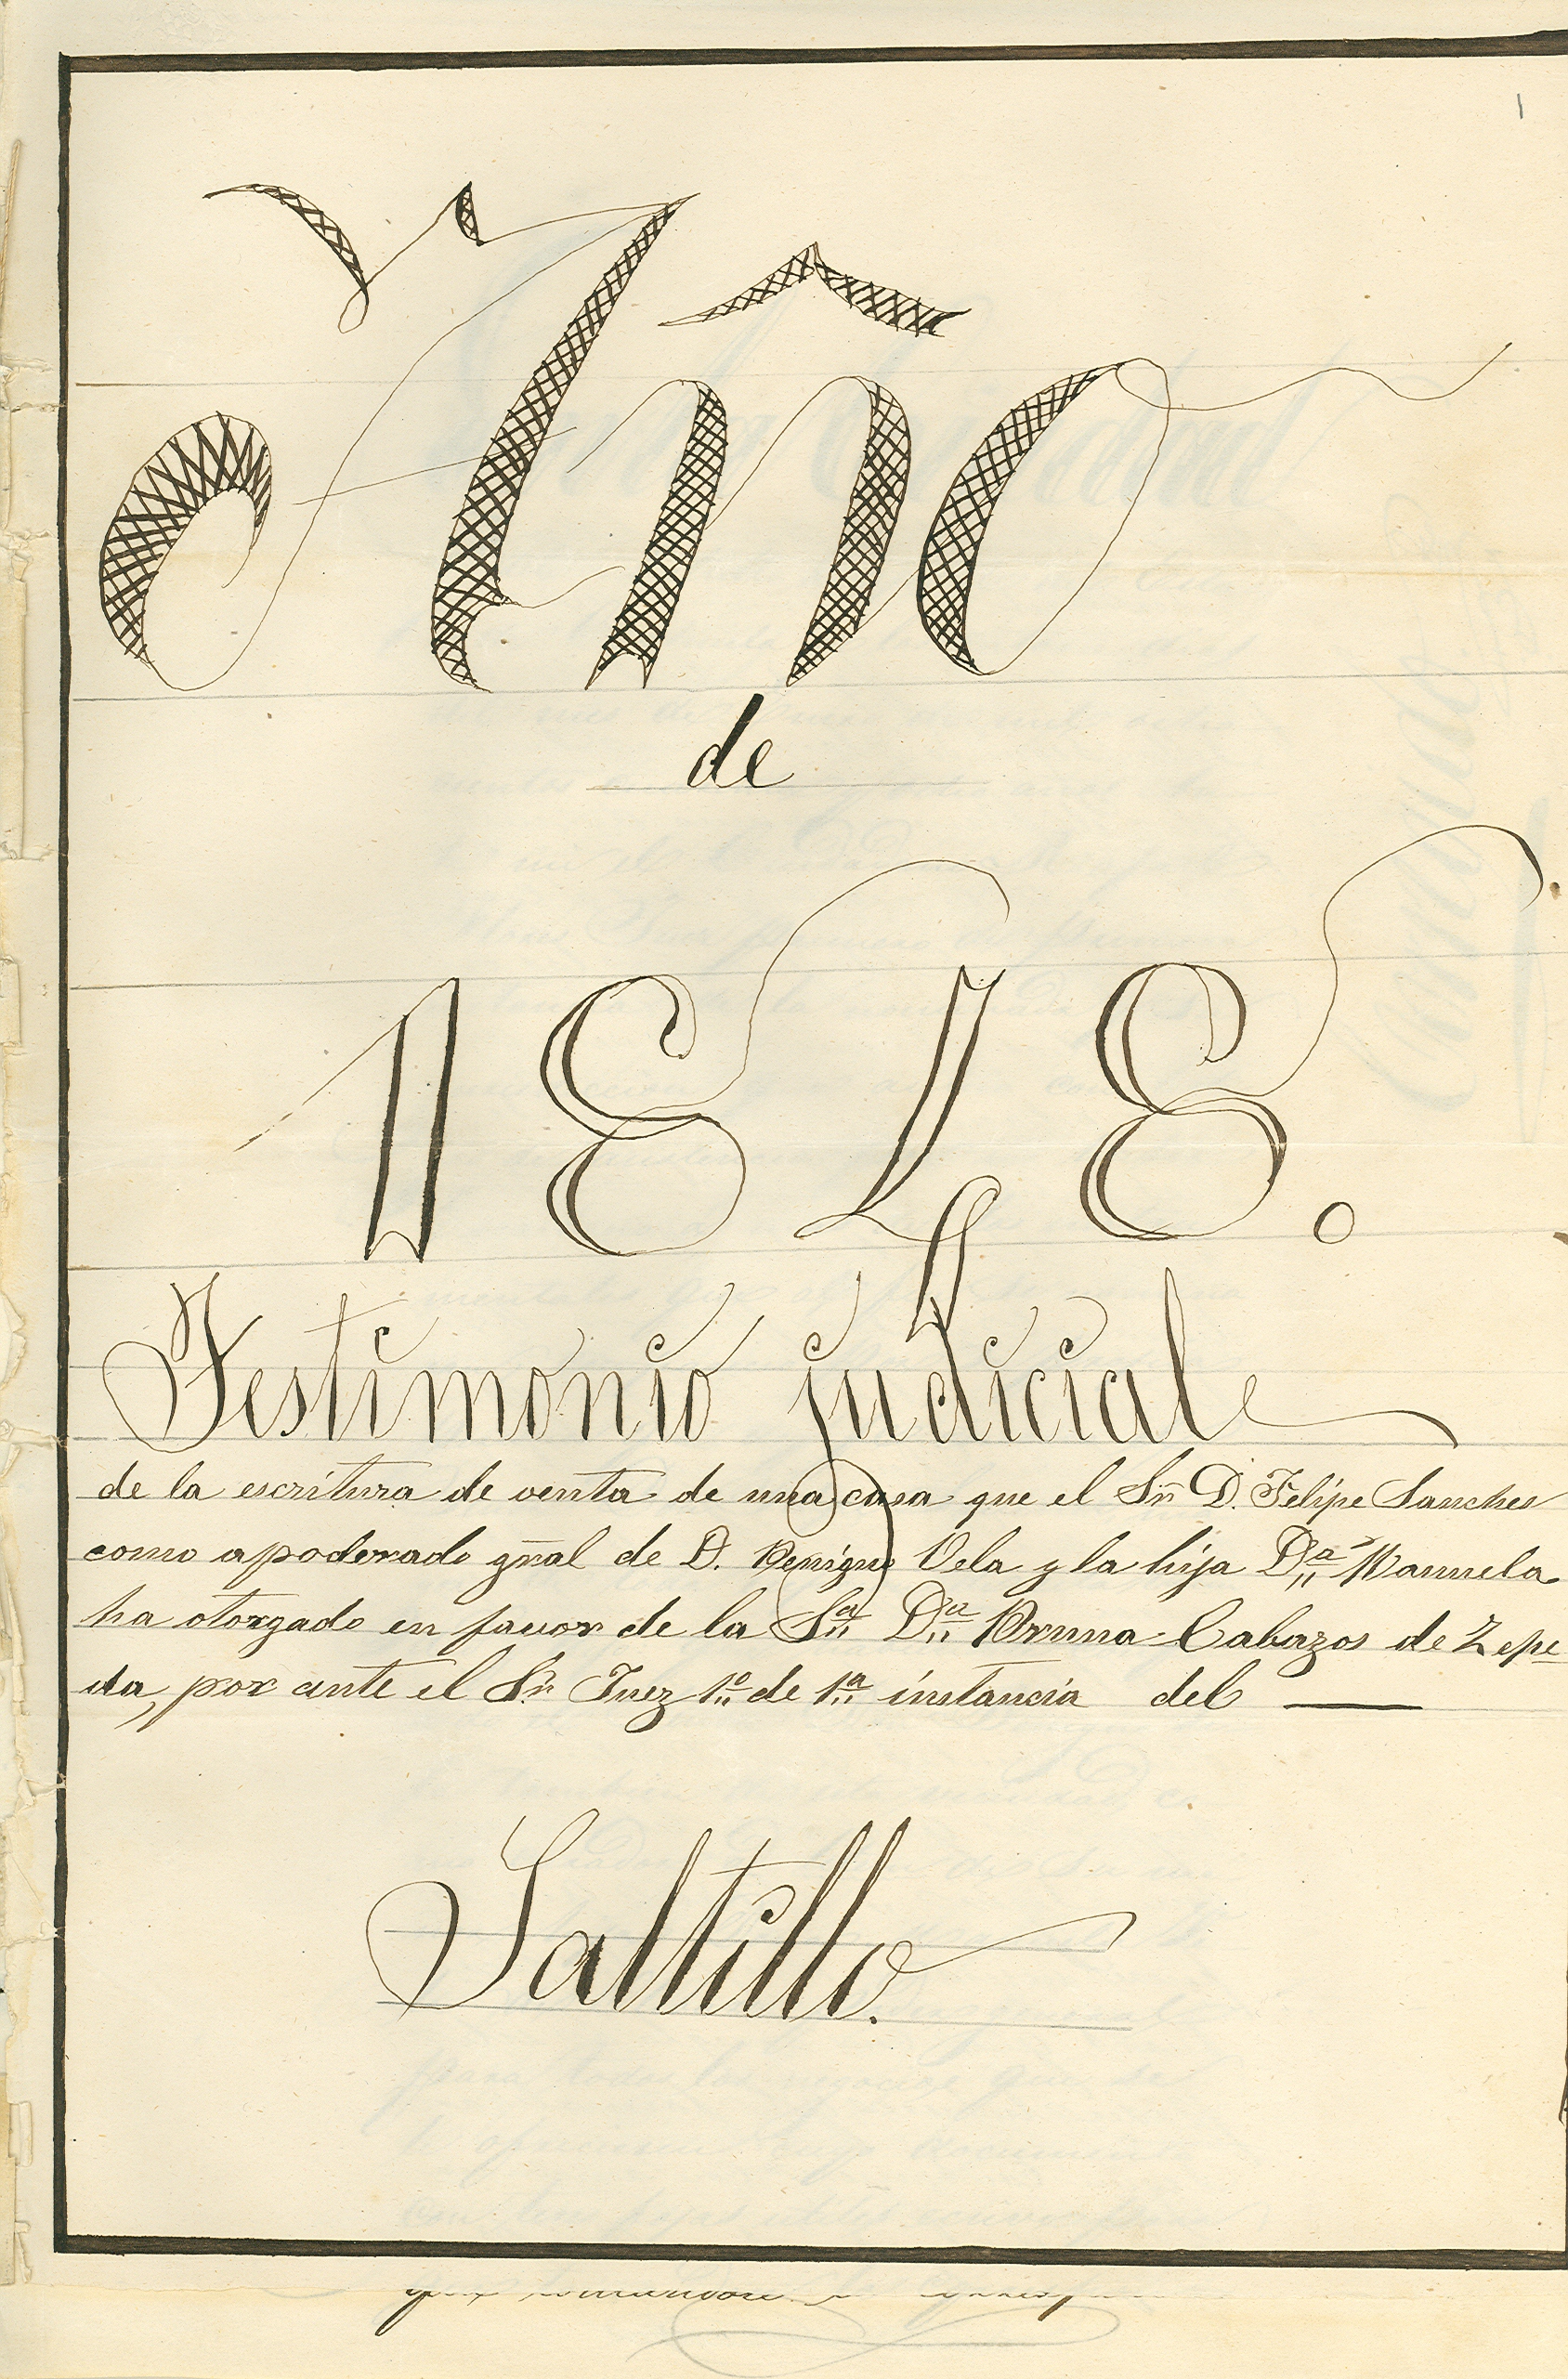 1
Año
de
1848.
Testimonio judicial
de la escritura de venta de una casa que el Sñ D. Felipe Sanches
como apoderado gñral de D. Benigno Vela y la hija Dª Manuela
ha otorgado en favor de la Sª Dª Bruna Cabazos de Zepe
da, por ante el Sñ Juez 1º de 1ª instancia del
Saltillo.